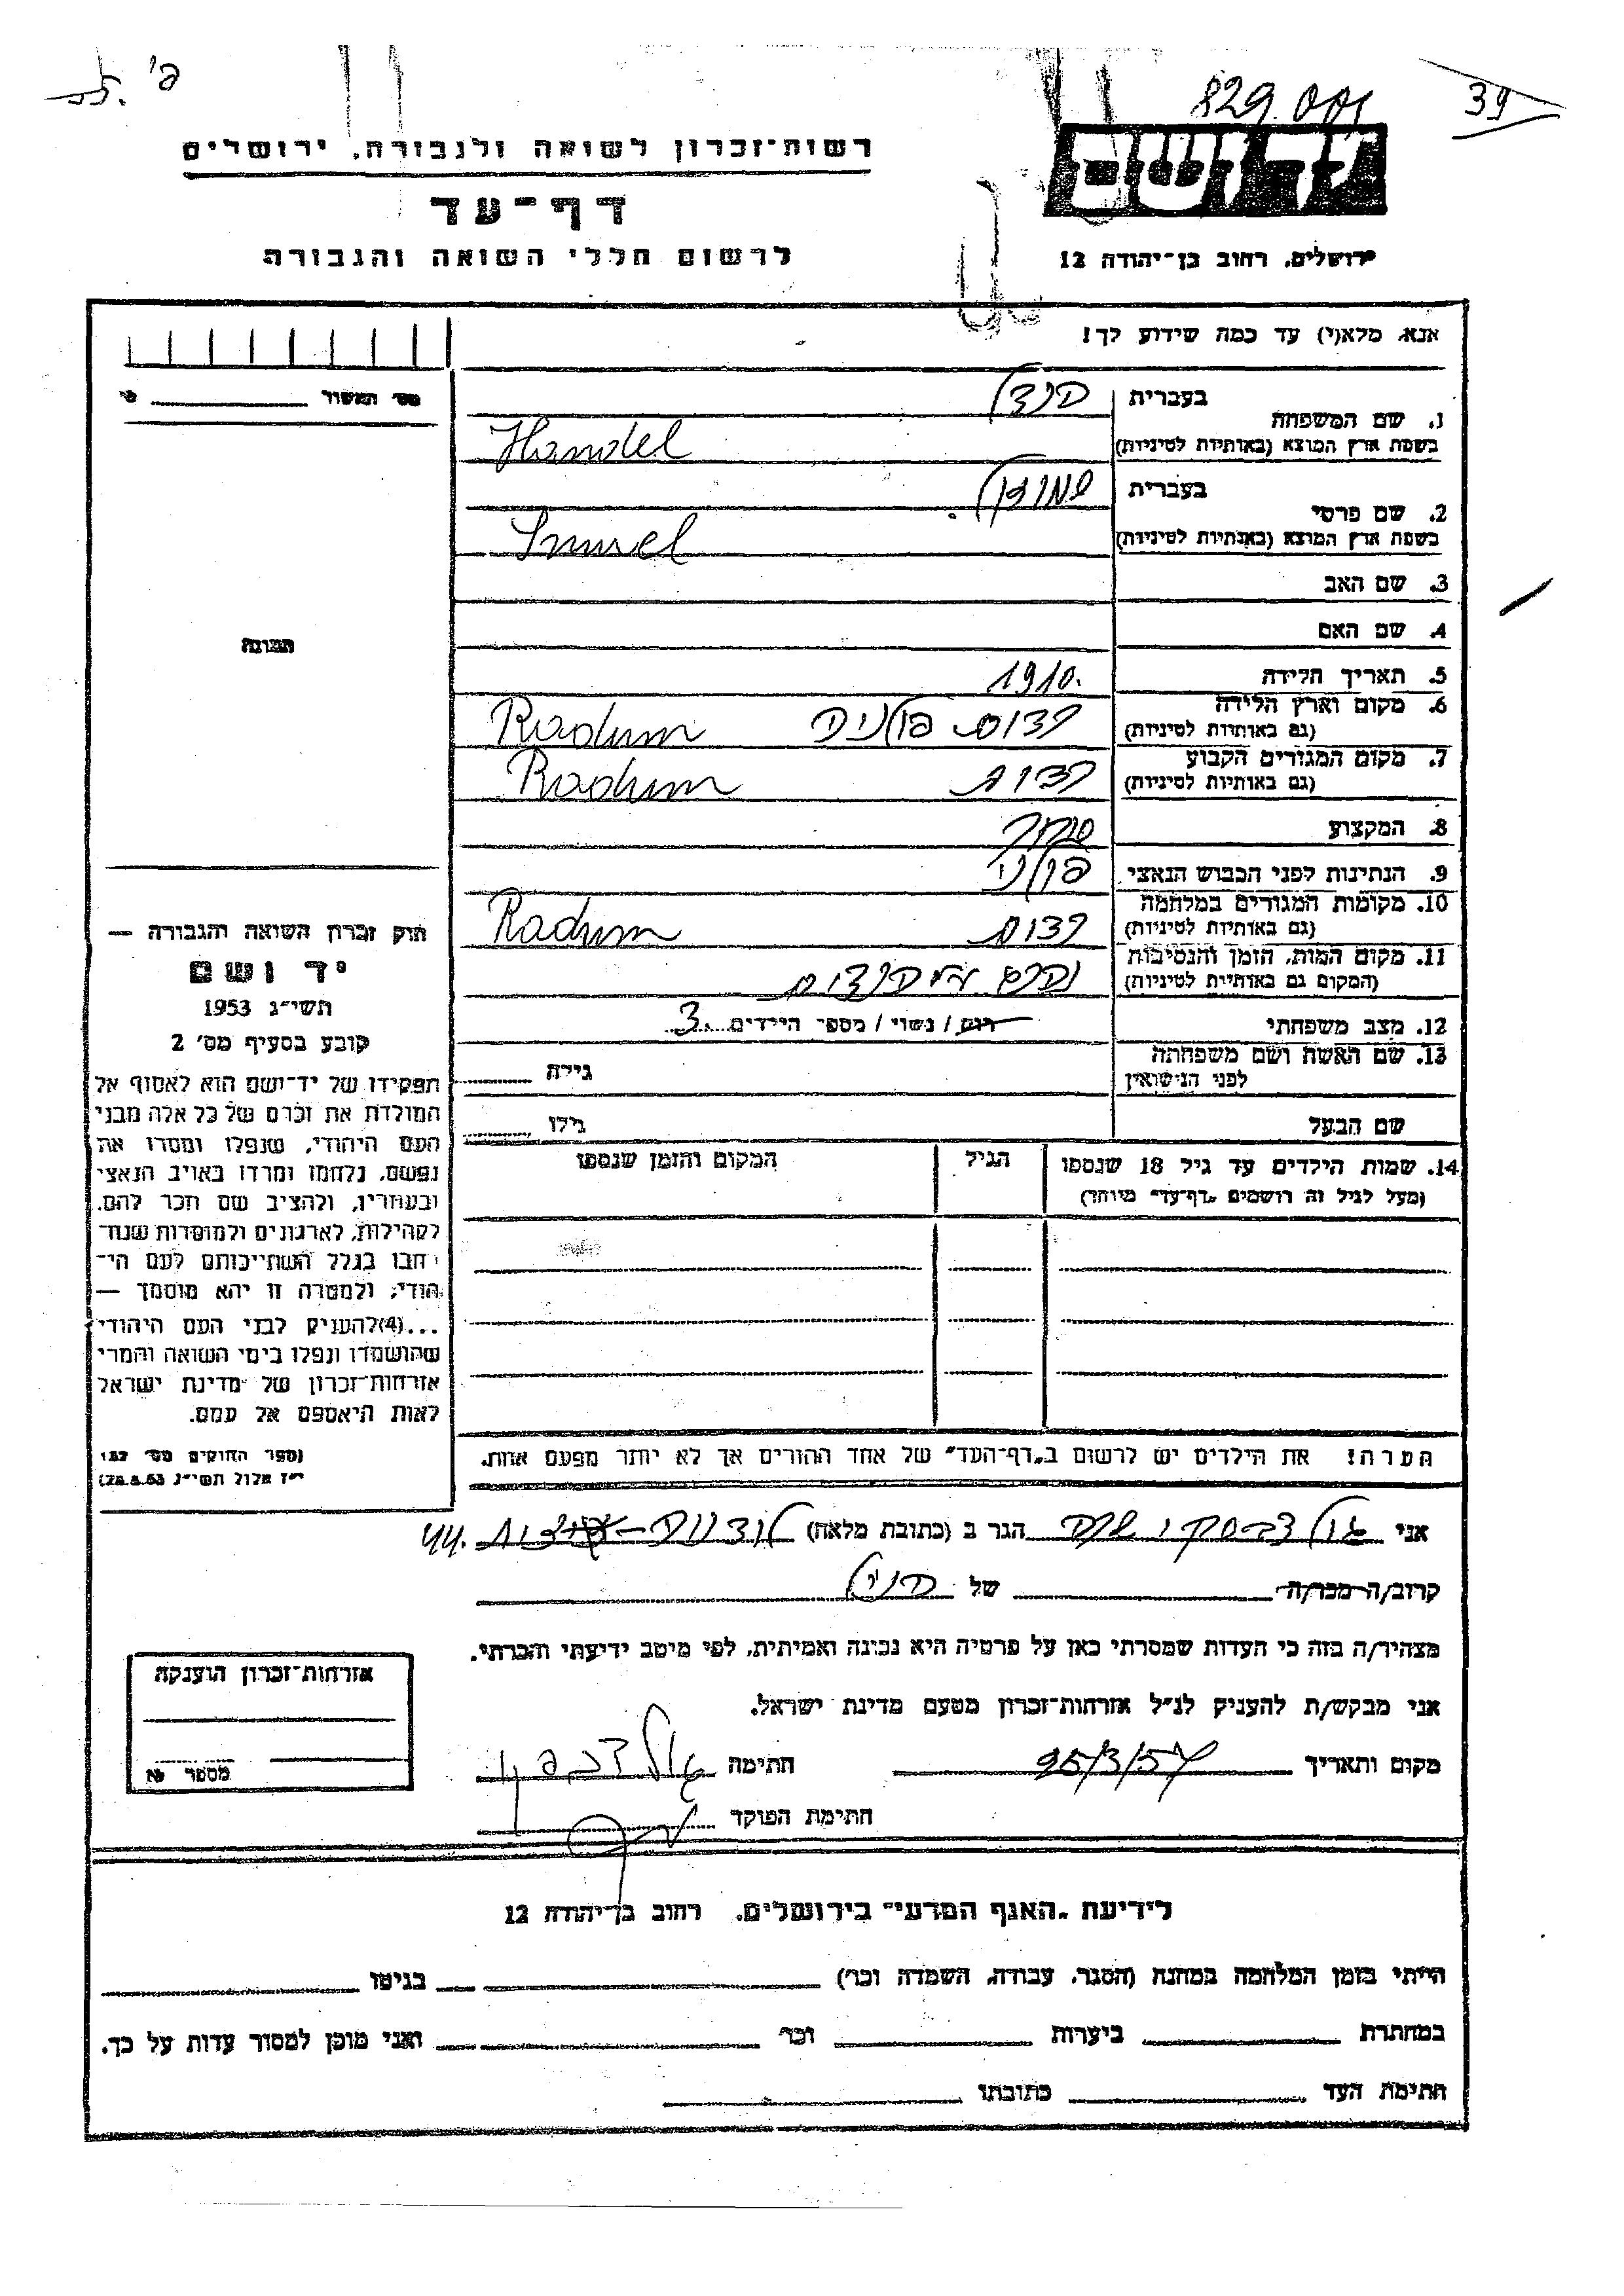 פ'
829.001
39
רשות־זכרון לשואה ולגבורה, ירושלים
דף־עד
לרשום חללי השואה והגבורה
יד ושם
ירושלים, רחוב בן־יהודה 12
אנא, מלא(י) עד כמה שידוע לך!
1. שם המשפחה
בעברית
הנדל
בשפת ארץ המוצא (באותיות לטיניות)
Handel
2. שם פרטי
בעברית
שמואל
בשפת ארץ המוצא (באותיות לטיניות)
Smuel
3. שם האב
4. שם האם
5. תאריך הלידה
1910.
6. מקום וארץ הלידה
(גם באותיות לטיניות)
רדום פולניה Radum
7. מקום המגורים הקבוע
(גם באותיות לטיניות)
רדום Radum
8. המקצוע
סוחר
9. הנתינות לפני הכבוש הנאצי
פולני
10. מקומות המגורים במלחמה
(גם באותיות לטיניות)
רדום Radum
11. מקום המות, הזמן והנסיבות
(המקום גם באותיות לטיניות)
12. מצב משפחתי
רווק / נשוי / מספר הילדים 3
13. שם האשה ושם משפחתה
לפני הנישואין
גילה
שם הבעל
גילו
14. שמות הילדים עד גיל 18 שנספו
(מעל לגיל זה רושמים "דף־עד" מיוחד)
הגיל
המקום והזמן שנספו
הערה! את הילדים יש לרשום ב"דף־העד" של אחד ההורים אך לא יותר מפעם אחת.
מס' תמשור
תמונה
חוק זכרון השואה והגבורה —
יד ושם
תשי"ג 1953
קובע בסעיף מס' 2
תפקידו של יד־ושם הוא לאסוף אל
המולדת את זכרם של כל אלה מבני
העם היהודי, שנפלו ומסרו את
נפשם, נלחמו ומרדו באויב הנאצי
ובעוזריו, ולהציב שם וזכר להם,
לקהילות, לארגונים ולמוסדות שנח־
רבו בגלל השתייכותם לעם הי־
הודי; ולמטרה זו יהא מוסמך —
...(4) להעניק לבני העם היהודי
שהושמדו ונפלו בימי השואה והמרי
אזרחות־זכרון של מדינת ישראל
לאות היאספם אל עמם.
(ספר החוקים מס' 132
י"ז אלול תשי"ג 28.8.53)
אני הגר ב (כתובת מלאה) 44.
קרוב/ה מכר/ה של
מצהיר/ה בזה כי העדות שמסרתי כאן על פרטיה היא נכונה ואמיתית, לפי מיטב ידיעתי והכרתי.
אני מבקש/ת להעניק לנ"ל אזרחות־זכרון מטעם מדינת ישראל.
מקום ותאריך 25/3/57 חתימה
חתימת הפוקד
אזרחות־זכרון הוענקה
מספר
לידיעת "האגף המדעי" בירושלים, רחוב בן־יהודה 12
הייתי בזמן המלחמה במחנה (הסגר, עבודה, השמדה וכו') בגיטו
במחתרת ביערות וכו' ואני מוכן למסור עדות על כך.
חתימת העד כתובתו